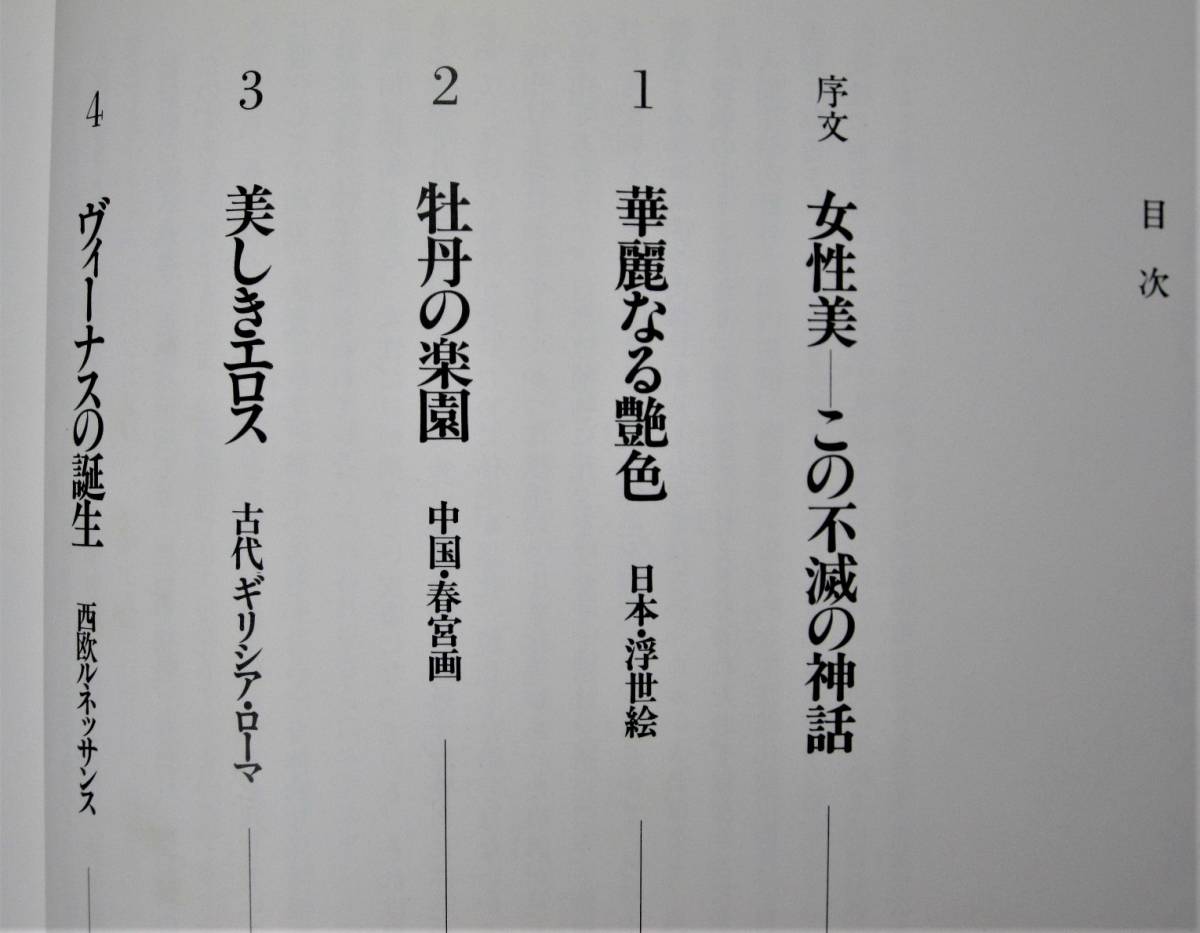 目次
序文 女性美──この不滅の神話
1 華麗なる艶色 日本・浮世絵
2 牡丹の楽園 中国・春宮画
3 美しきエロス 古代ギリシア・ローマ
4 ヴィーナスの誕生 西欧ルネッサンス